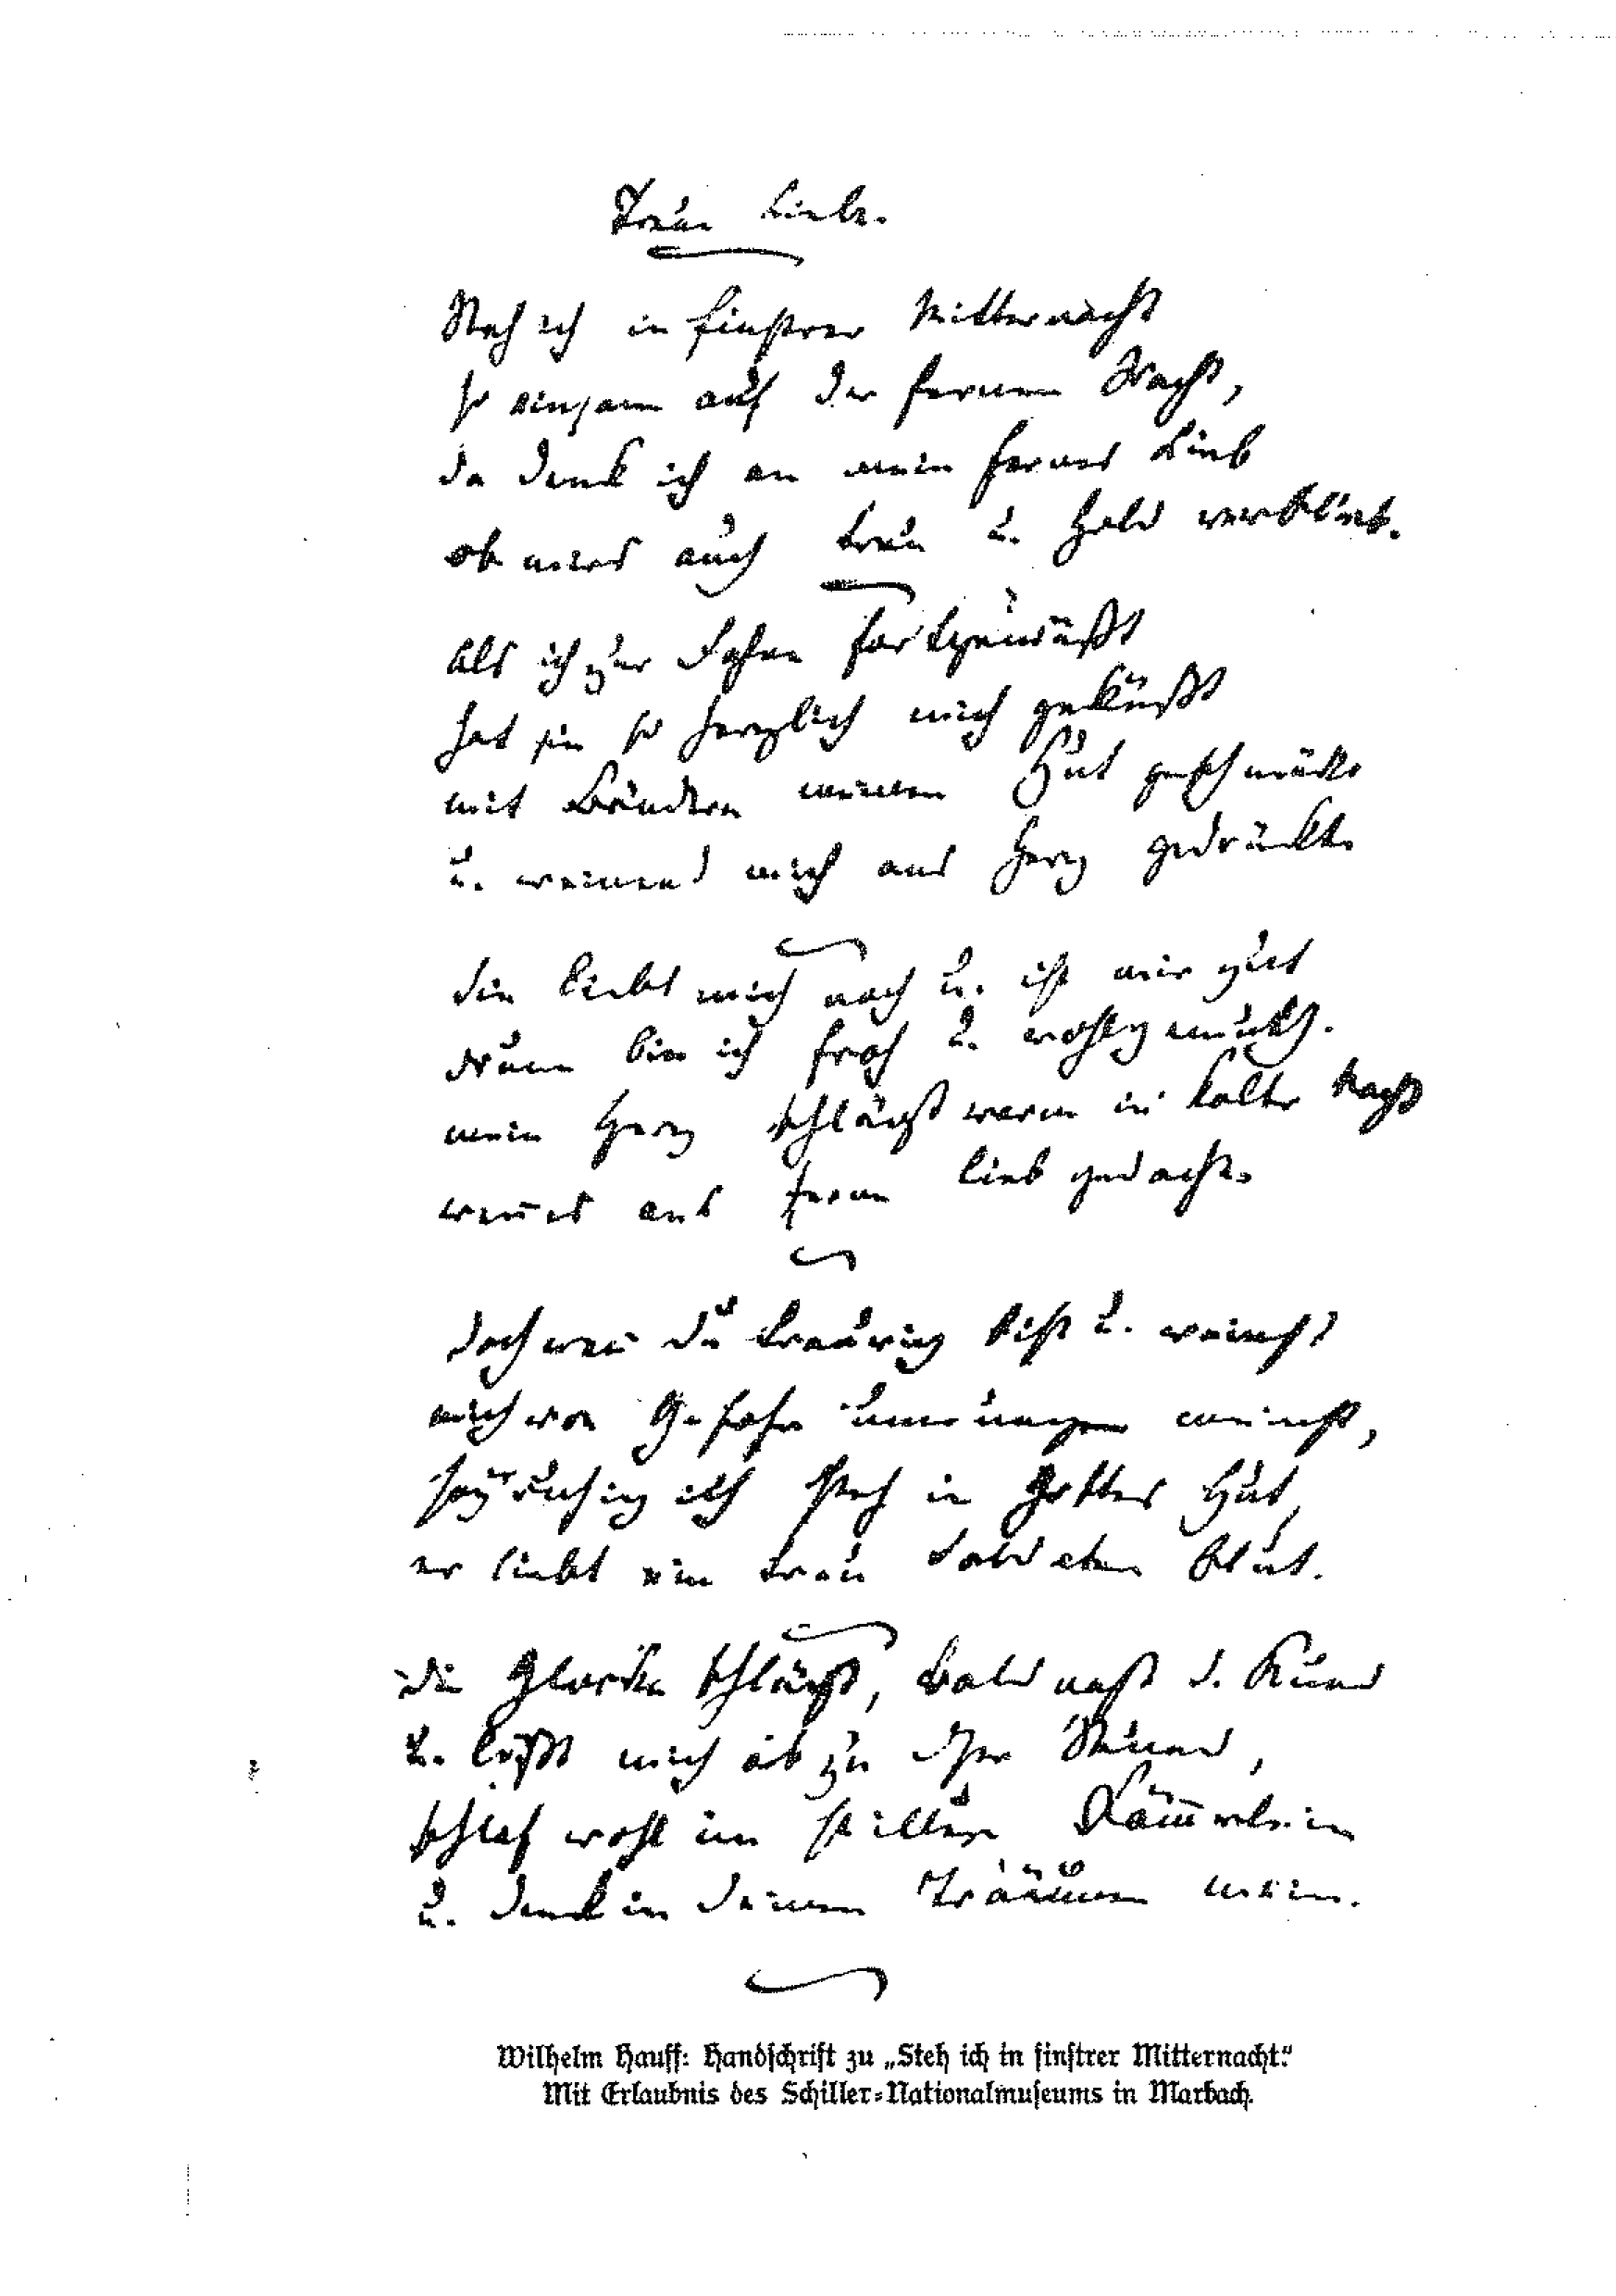 Treue Liebe.
Steh ich in finstrer Mitternacht
so einsam auf der fernen Wacht,
da denk ich an mein fernes Lieb
ob mirs auch treu u. hold verblieb.
Als ich zur Fahne fortgemüßt
hat sie so herzlich mich geküßt
mit Bändern meinen Hut geschmückt
u. weinend mich ans Herz gedrückt.
Sie liebt mich noch u. ist mir gut
drum bin ich froh u. wohlgemuth.
mein Herz schlägt warm in kalter Nacht
wenn es ans ferne Lieb gedacht.
Doch wen̄ du traurig bist u. weinst
mich von Gefahr umrungen meinst,
sey ruhig ich steh in Gottes Hut,
er liebt ein treu Soldaten Blut.
Die Glocke schlägt, bald naht d. Rund
u. löst mich ab zu dieser Stund,
schlaf wohl im stillen Käm̄erlein
u. denk in deinen Träumen mein.
Wilhelm Hauff: Handschrift zu „Steh ich in finstrer Mitternacht“.
Mit Erlaubnis des Schiller=Nationalmuseums in Marbach.